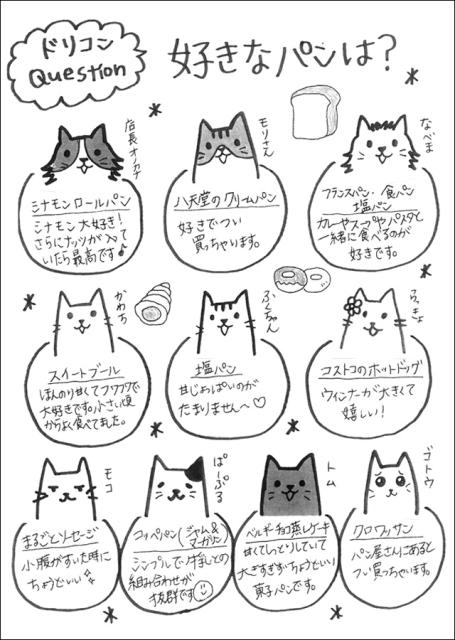 ドリコン
Question
好きなパンは?
店長オカチ
シナモンロールパン
シナモン大好き!
さらにナッツが入って
いたら最高です♪
モリさん
八天堂のクリームパン
好きでつい
買っちゃいます。
なべま
フランスパン・食パン
塩パン
カレーやスープやパスタと
一緒に食べるのが
好きです。
かわち
スイートブール
ほんのり甘くてフワフワで
大好きです。小さい頃
からよく食べてました。
ふくちゃん
塩パン
甘じょっぱいのが
たまりません〜♡
らっきょ
コストコのホットドッグ
ウィンナーが大きくて
嬉しい!
モコ
まるごとソーセージ
小腹がすいた時に
ちょうどいい
ぱーぷる
コッペパン(ジャム&
マーガリン)
シンプルで
組み合わせが
抜群です
トム
ベルギーチョコ蒸しケーキ
甘くてしっとりしていて
大きすぎず、ちょうどいい
菓子パンです。
ゴトウ
クロワッサン
パン屋さんにあると
つい買っちゃいます。